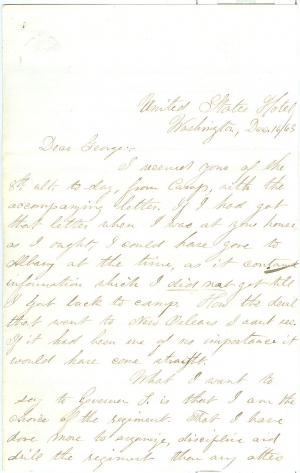 United States Hotel
Washington, Dec 16/63
Dear George:-
I received yours of the
8th ult. to day, from Camp, with the
accompanying letter. If I had got
that letter when I was at your house
as I ought, I could have gone to
Albany at the time, as it contained
information which I did not get till
I got back to camp. How the devil
that went to New Orleans I cant see.
If it had been one of no importance it
would have come straight.
What I want to
say to Governor S. is that I am the
choice of the regiment. That I have
done more to organize, discipline and
drill the regiment than any other